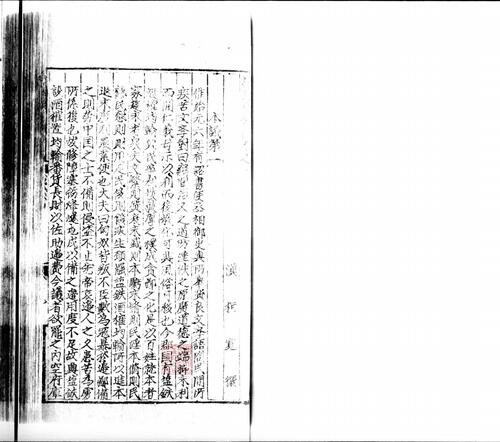 漢桓寬撰
本議第一
惟始元六年有詔書使丞相御史與所舉賢良文學語問民間所
疾苦文學對曰竊聞治人之道防淫佚之原廣道德之端抑末利
而開仁義毋示以利然後教化可興而風俗可移也今郡國有鹽鐵
酒榷均輸與民爭利散敦厚之樸成貪鄙之化是以百姓就本者
寡趨末者衆夫文繁則質衰末盛則本虧末修則民淫本修則民
慤民慤則財用足民侈則饑寒生願罷鹽鐵酒榷均輸所以進本
退末廣利農業便也大夫曰匈奴背叛不臣數爲寇暴於邊鄙備
之則勞中國之士不備則侵盜不止先帝哀邊人之久患苦爲虜
所係獲也故修障塞飭烽燧屯戍以備之邊用度不足故興鹽鐵
設酒榷置均輸蕃貨長財以佐助邊費今議者欲罷之内空府庫